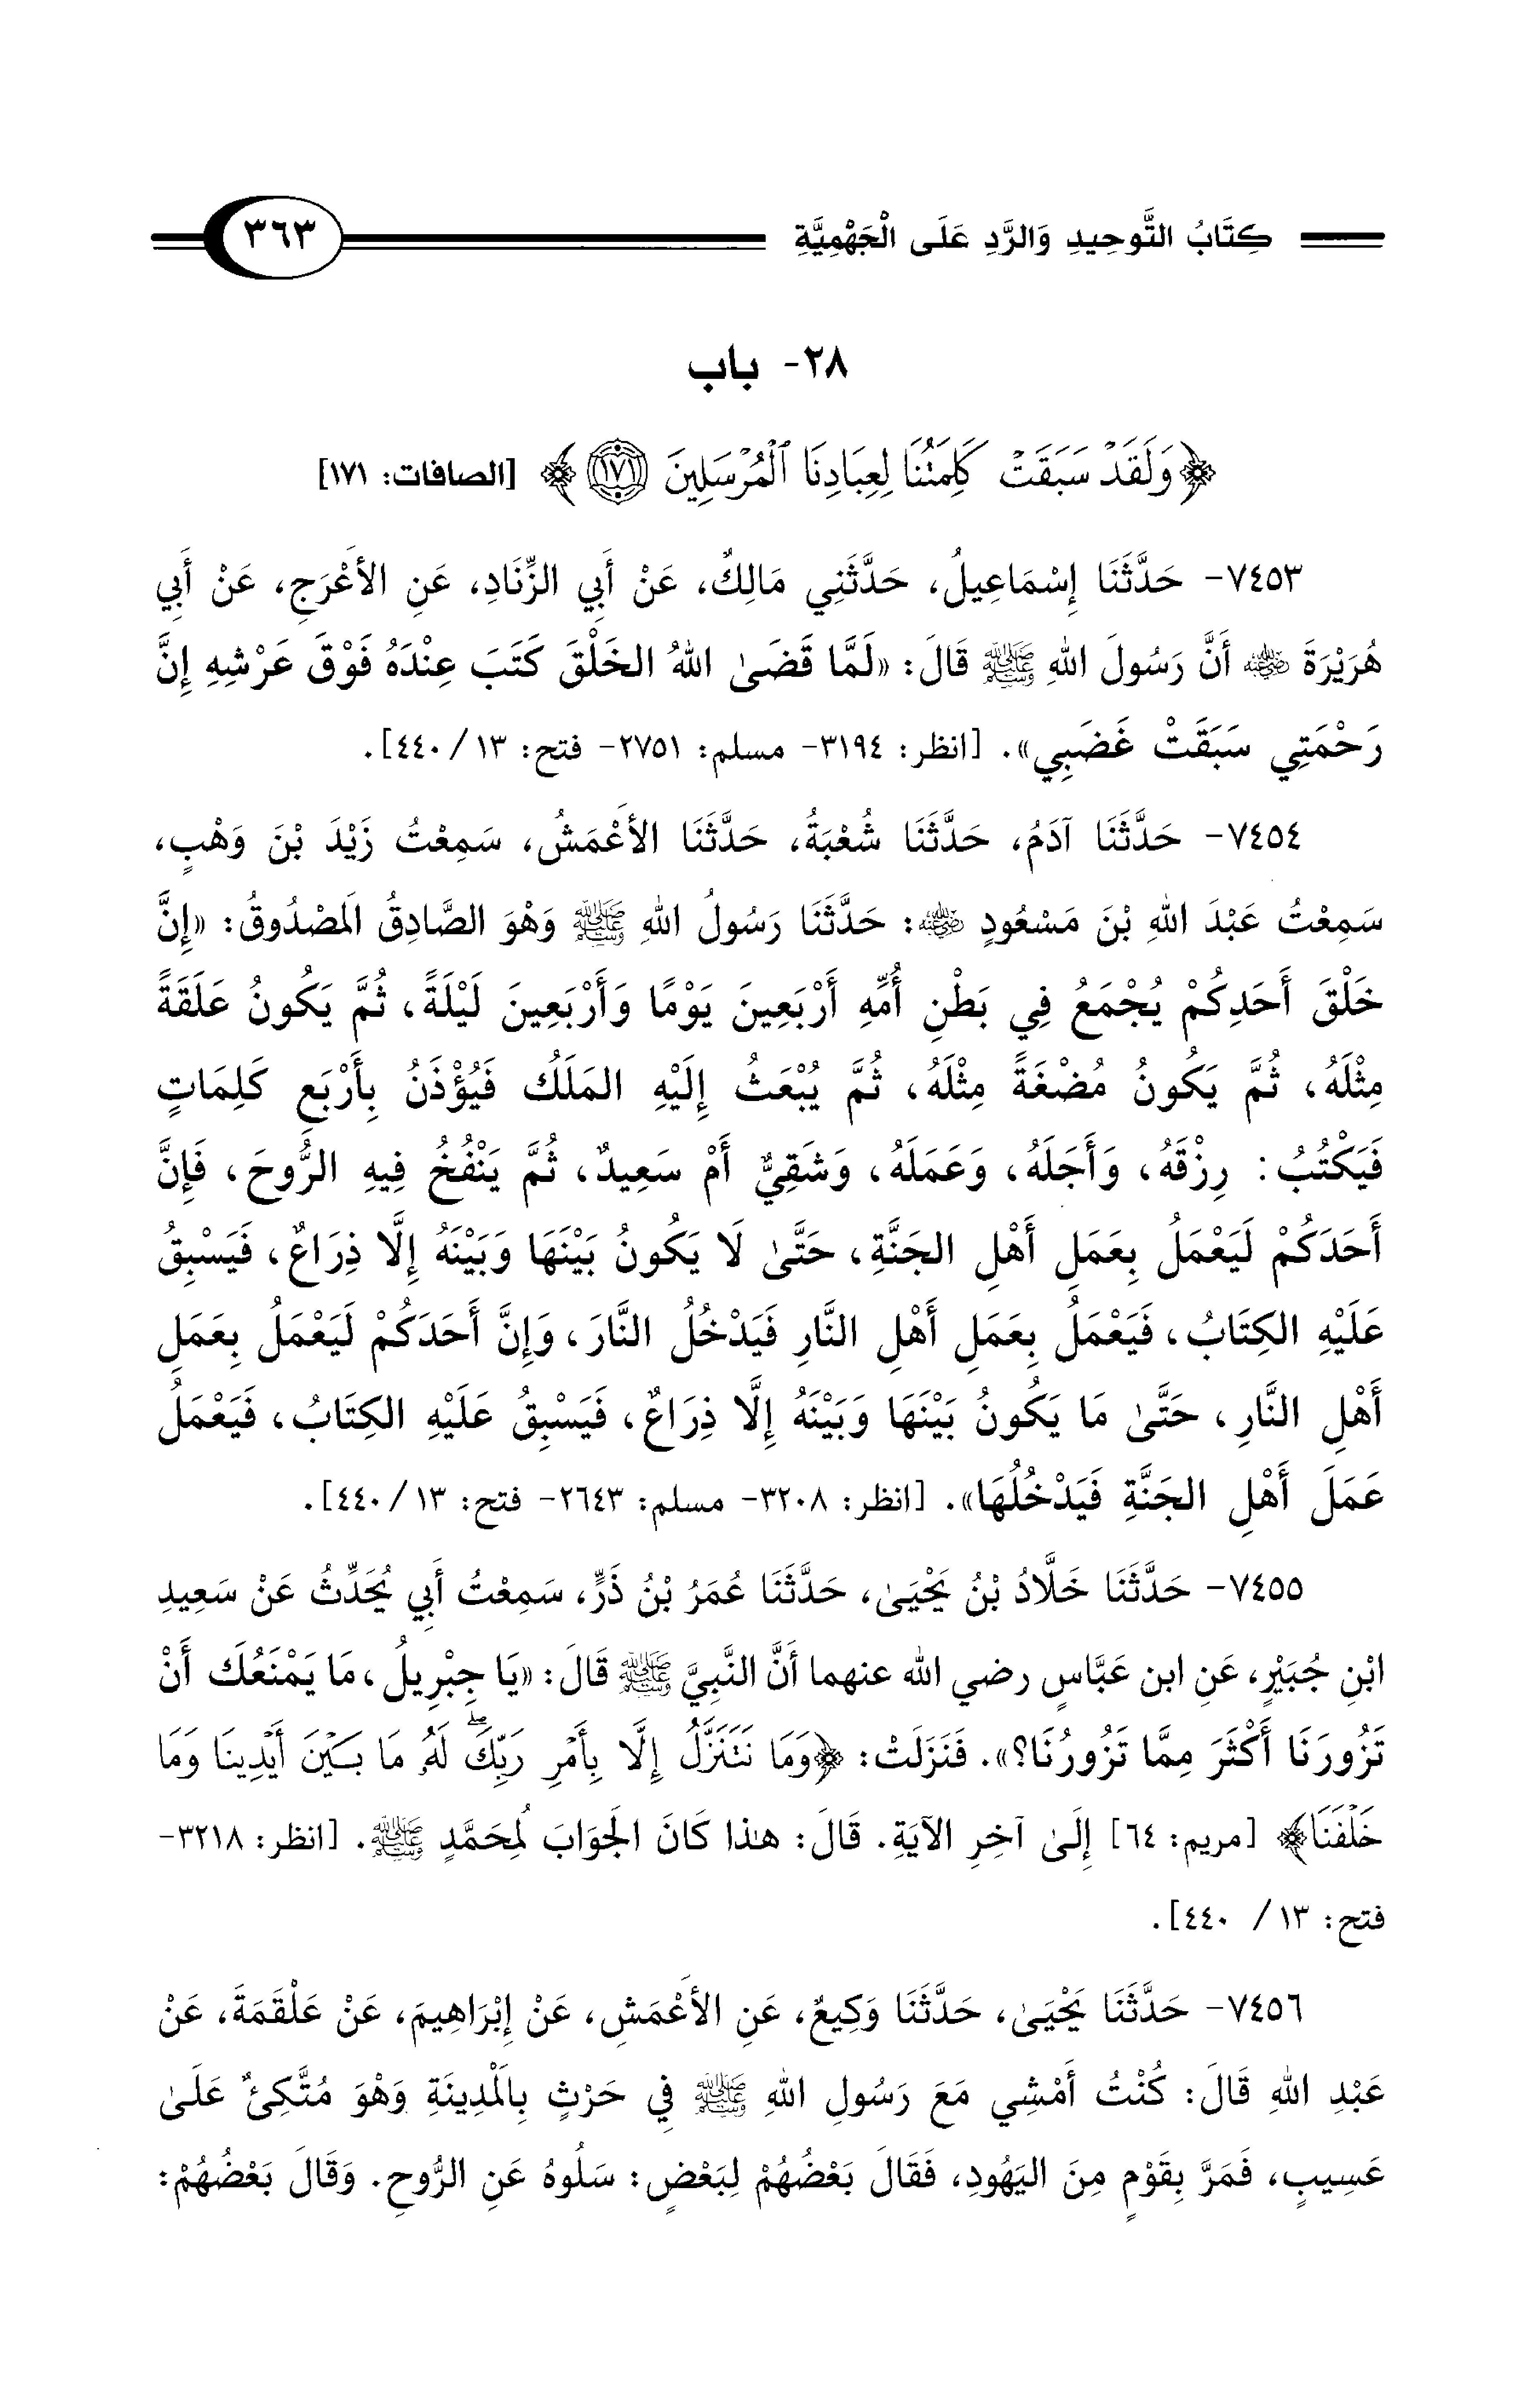 كِتَابُ التَّوحِيدِ وَالرَّدِ عَلَى الْجَهْمِيَّةِ ٣٦٣
٢٨- باب
﴿وَلَقَدْ سَبَقَتْ كَلِمَتُنَا لِعِبَادِنَا ٱلْمُرْسَلِينَ ١٧١﴾ [الصافات: ١٧١]
٧٤٥٣- حَدَّثَنَا إِسْمَاعِيلُ، حَدَّثَنِي مَالِكٌ، عَنْ أَبِي الزِّنَادِ، عَنِ الأَعْرَجِ، عَنْ أَبِي
هُرَيْرَةَ ﵁ أَنَّ رَسُولَ اللهِ ﷺ قَالَ: «لَمَّا قَضَىٰ اللهُ الخَلْقَ كَتَبَ عِنْدَهُ فَوْقَ عَرْشِهِ إِنَّ
رَحْمَتِي سَبَقَتْ غَضَبِي». [انظر: ٣١٩٤- مسلم: ٢٧٥١- فتح: ١٣/ ٤٤٠].
٧٤٥٤- حَدَّثَنَا آدَمُ، حَدَّثَنَا شُعْبَةُ، حَدَّثَنَا الأَعْمَشُ، سَمِعْتُ زَيْدَ بْنَ وَهْبٍ،
سَمِعْتُ عَبْدَ اللهِ بْنَ مَسْعُودٍ ﵁: حَدَّثَنَا رَسُولُ اللهِ ﷺ وَهْوَ الصَّادِقُ المَصْدُوقُ: «إِنَّ
خَلْقَ أَحَدِكُمْ يُجْمَعُ فِي بَطْنِ أُمِّهِ أَرْبَعِينَ يَوْمًا وَأَرْبَعِينَ لَيْلَةً، ثُمَّ يَكُونُ عَلَقَةً
مِثْلَهُ، ثُمَّ يَكُونُ مُضْغَةً مِثْلَهُ، ثُمَّ يُبْعَثُ إِلَيْهِ المَلَكُ فَيُؤْذَنُ بِأَرْبَعِ كَلِمَاتٍ
فَيَكْتُبُ: رِزْقَهُ، وَأَجَلَهُ، وَعَمَلَهُ، وَشَقِيٌّ أَمْ سَعِيدٌ، ثُمَّ يَنْفُخُ فِيهِ الرُّوحَ، فَإِنَّ
أَحَدَكُمْ لَيَعْمَلُ بِعَمَلِ أَهْلِ الجَنَّةِ، حَتَّىٰ لَا يَكُونُ بَيْنَهَا وَبَيْنَهُ إِلَّا ذِرَاعٌ، فَيَسْبِقُ
عَلَيْهِ الكِتَابُ، فَيَعْمَلُ بِعَمَلِ أَهْلِ النَّارِ فَيَدْخُلُ النَّارَ، وَإِنَّ أَحَدَكُمْ لَيَعْمَلُ بِعَمَلِ
أَهْلِ النَّارِ، حَتَّىٰ مَا يَكُونُ بَيْنَهَا وَبَيْنَهُ إِلَّا ذِرَاعٌ، فَيَسْبِقُ عَلَيْهِ الكِتَابُ، فَيَعْمَلُ
عَمَلَ أَهْلِ الجَنَّةِ فَيَدْخُلُهَا». [انظر: ٣٢٠٨- مسلم: ٢٦٤٣- فتح: ١٣/ ٤٤٠].
٧٤٥٥- حَدَّثَنَا خَلَّادُ بْنُ يَحْيَىٰ، حَدَّثَنَا عُمَرُ بْنُ ذَرٍّ، سَمِعْتُ أَبِي يُحَدِّثُ عَنْ سَعِيدِ
ابْنِ جُبَيْرٍ، عَنِ ابن عَبَّاسٍ رضي الله عنهما أَنَّ النَّبِيَّ ﷺ قَالَ: «يَا جِبْرِيلُ، مَا يَمْنَعُكَ أَنْ
تَزُورَنَا أَكْثَرَ مِمَّا تَزُورُنَا؟». فَنَزَلَتْ: ﴿وَمَا نَتَنَزَّلُ إِلَّا بِأَمْرِ رَبِّكَۖ لَهُۥ مَا بَيْنَ أَيْدِينَا وَمَا
خَلْفَنَا﴾ [مريم: ٦٤] إِلَىٰ آخِرِ الآيَةِ. قَالَ: هٰذا كَانَ الجَوَابَ لُمِحَمَّدٍ ﷺ. [انظر: ٣٢١٨-
فتح: ١٣/ ٤٤٠].
٧٤٥٦- حَدَّثَنَا يَحْيَىٰ، حَدَّثَنَا وَكِيعٌ، عَنِ الأَعْمَشِ، عَنْ إِبْرَاهِيمَ، عَنْ عَلْقَمَةَ، عَنْ
عَبْدِ اللهِ قَالَ: كُنْتُ أَمْشِي مَعَ رَسُولِ اللهِ ﷺ فِي حَرْثٍ بِالَمْدِينَةِ وَهْوَ مُتَّكِئٌ عَلَىٰ
عَسِيبٍ، فَمَرَّ بِقَوْمٍ مِنَ اليَهُودِ، فَقَالَ بَعْضُهُمْ لِبَعْضٍ: سَلُوهُ عَنِ الرُّوحِ. وَقَالَ بَعْضُهُمْ: